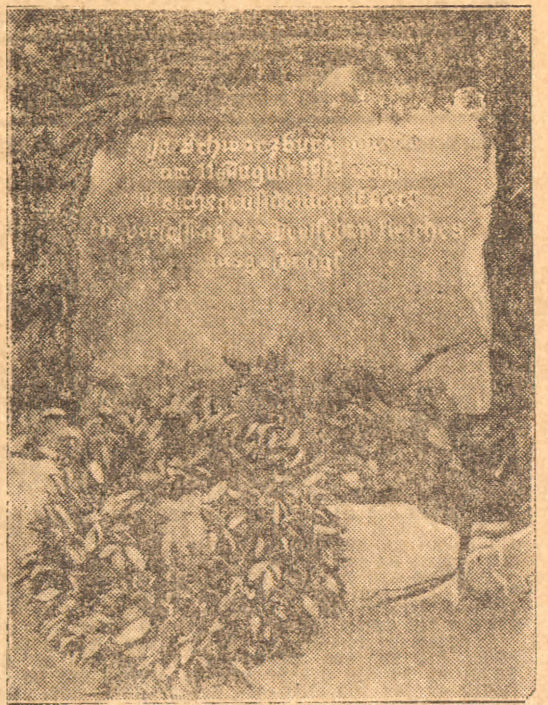 In Schwarzburg wurde
am 11. August 1919 vom
Reichspräsidenten Ebert
die Verfassung des Deutschen Reiches
ausgefertigt